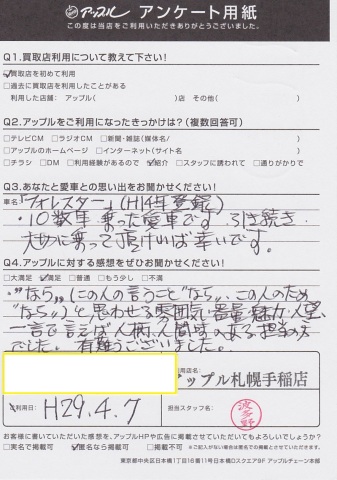 アップル アンケート用紙
この度は当店をご利用いただきありがとうございました。
Q1.買取店利用について教えて下さい!
☑買取店を初めて利用
□過去に買取店を利用したことがある
利用した店舗: アップル( )店 その他( )
Q2.アップルをご利用になったきっかけは?(複数回答可)
□テレビCM □ラジオCM □新聞・雑誌(媒体名/ )
□アップルのホームページ □インターネット(サイト名 )
□チラシ □DM □利用経験があるので ☑紹介 □スタッフに誘われて □通りがかりで
Q3.あなたと愛車との思い出をお聞かせください!
車名「フォレスター」(H14年登録)
・10数年乗った愛車です。引き続き
大切に乗って頂ければ幸いです。
Q4.アップルに対する感想をぜひお聞かせください!
□大満足 ☑満足 □普通 □もう少し □不満
・"なら〟(この人の言うこと"なら〟、この人のため
"なら〟)と思わせる雰囲気・器量・魅力・人望、
一言で言えば人柄、人間味のある担当の方
でした。有難うございました。
アップル札幌手稲店
ご利用日: H29.4.7
担当スタッフ名: 波多野
お客様に書いていただいた感想を、アップルHPや広告に掲載させていただいてもよろしいでしょうか?
□実名で掲載可 ☑匿名なら掲載可 □掲載不可 ※ご記入がない場合は匿名で掲載させていただく場合がございます。
東京都中央区日本橋1丁目16番11号日本橋Dスクエア9F アップルチェーン本部